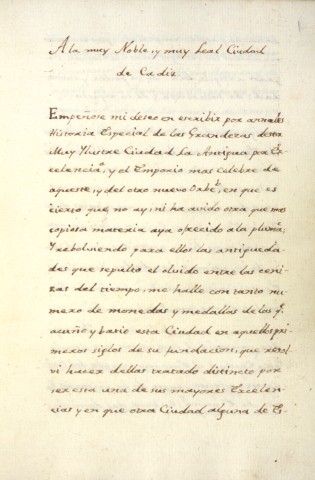 A la muy Noble, y muy Leal Ciudad
de Cadiz.
Empeñose mi deseo en escribir por annales
Historia Especial de las Grandezas desta
Muy Ylustre Ciudad La Antigua por Ex-
celencia, y el Emporio mas celebre de
aqueste, y del otro nuevo Orbe, en que es
cierto que no ay, ni ha avido otra que mas
copiosa materia aya ofrecido a la pluma;
Y rebolviendo para ellos las antigueda-
des que sepulto el olvido entre las ceni-
zas del tiempo, me halle con tanto nu-
mero de monedas y medallas de los q.
acuño y batio esta Ciudad en aquellos pri-
meros siglos de su fundacion, que resol-
vi hacer dellas tratado distincto por
ser esta una de sus mayores Excelen-
cias y en que otra Ciudad alguna de Es-